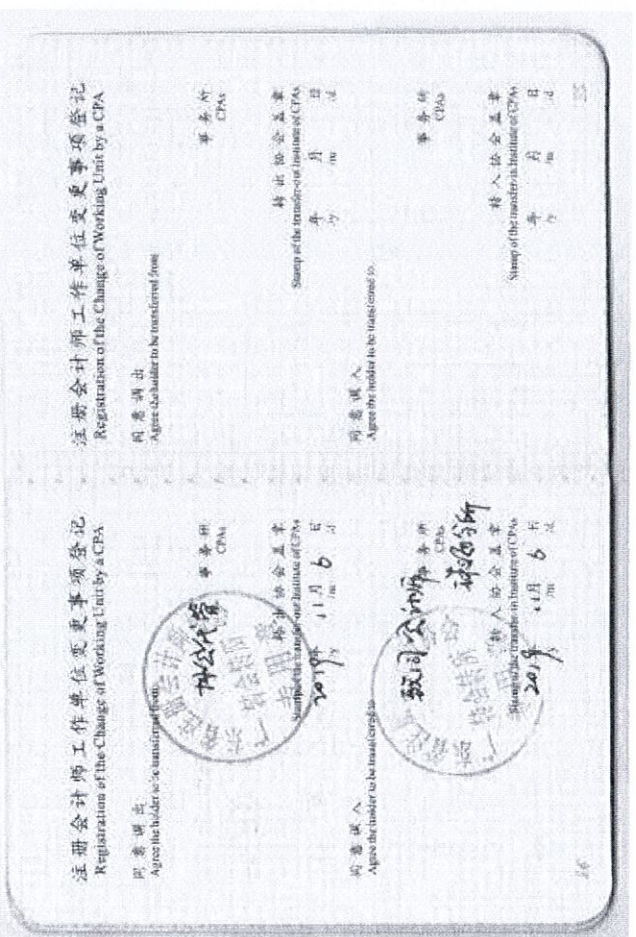 注册会计师工作单位变更事项登记
Registration of the Change of Working Unit by a CPA
同意调出
Agree the holder to be transferred from
协会代管 事务所
CPAs
转出协会盖章
Stamp of the transfer-out Institute of CPAs
2019年 11月 6日
/y /m /d
同意调入
Agree the holder to be transferred to
致同会计师 事务所
CPAs
转入协会盖章
Stamp of the transfer-in Institute of CPAs
2019 11月 6日
/y /m /d
注册会计师工作单位变更事项登记
Registration of the Change of Working Unit by a CPA
同意调出
Agree the holder to be transferred from
事务所
CPAs
转出协会盖章
Stamp of the transfer-out Institute of CPAs
年 月 日
/y /m /d
同意调入
Agree the holder to be transferred to
事务所
CPAs
转入协会盖章
Stamp of the transfer-in Institute of CPAs
年 月 日
/y /m /d